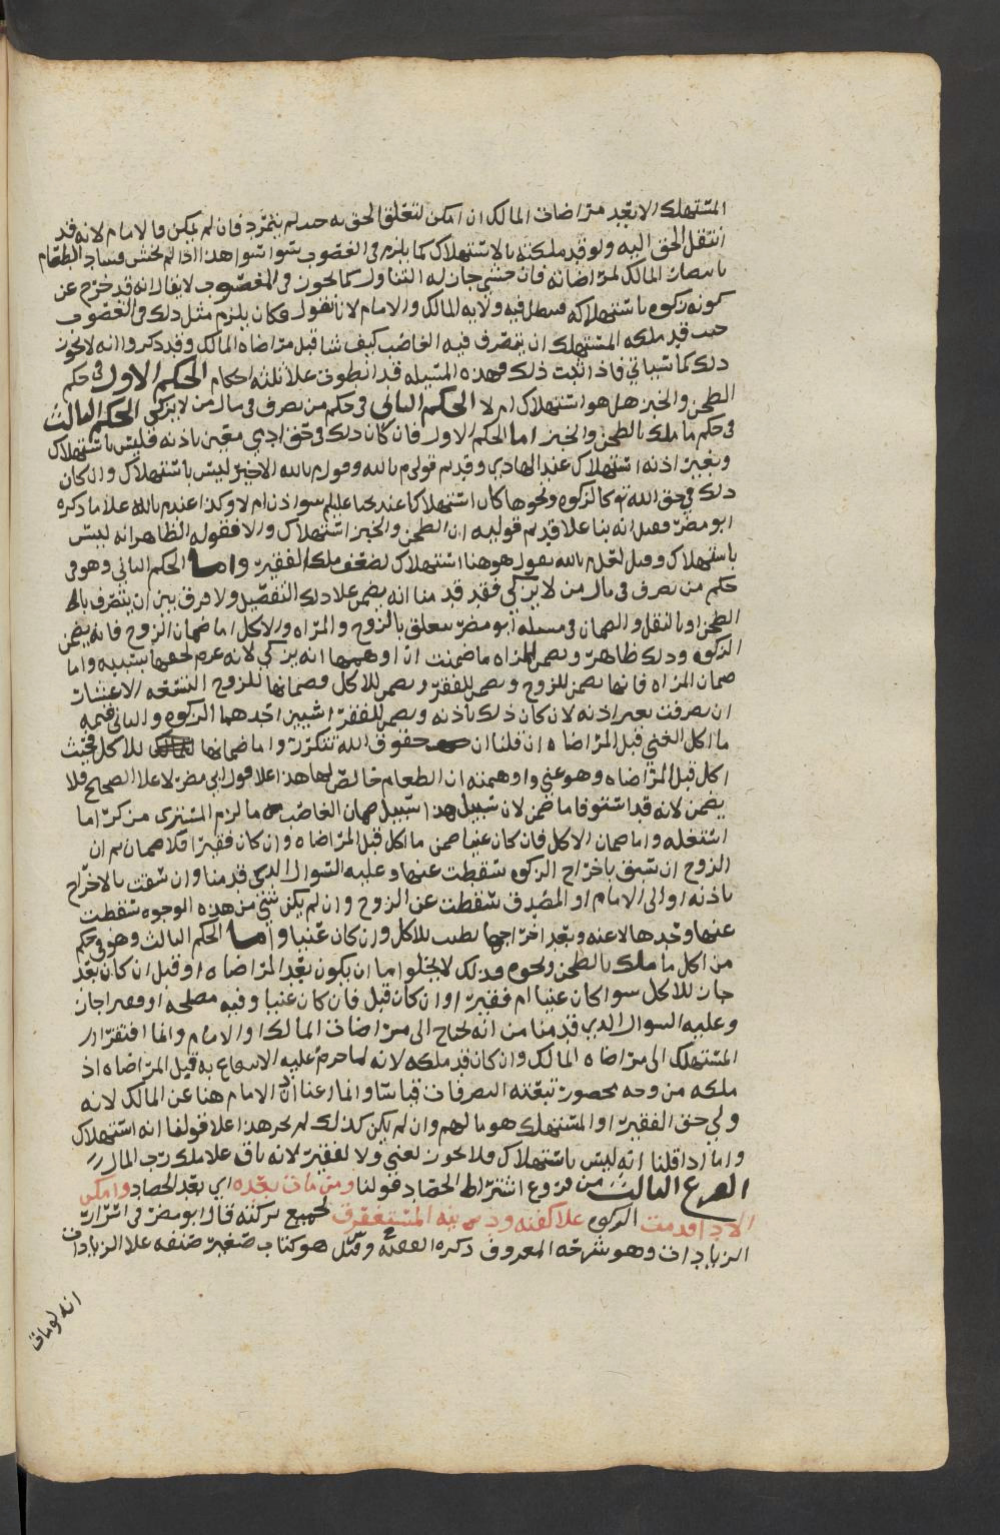 المستهلك الا بعد مراضات المالك ان امكن لتعلق الحق به حيث لم يتمرد فان لم يمكن فالامام لانه قد
انتقل الحق اليه ولو قد ملكته بالاستهلاك كما يلزم في الغصوب سوا سوا هذا اذا لم يخش فساد الطعام
بانتظار المالك لمراضاته فان خشي جاز له التناول كما يجوز في المغصوب لا يقال انه قد خرج عن
كونه زكوه باستهلاكه فبطل فيه ولايه المالك والامام لانا نقول فكان يلزم مثل ذلك في الغصوب
حيث قد ملكه المستهلك ان يتصرف فيه الغاصب كيف شا قبل مراضاه المالك وقد ذكروا انه لا يجوز
ذلك كما سياتي فاذا ثبت ذلك فهذه المسئله قد انطوت علا ثلثه احكام الحكم الاول في حكم
الطحن والخبز هل هو استهلاك ام لا الحكم الثاني في حكم من تصرف في مال من لا يزكي الحكم الثالث
في حكم ما ملك بالطحن والخبز اما الحكم الاول فان كان ذلك في حق ادمي معين باذنه فليس باستهلاك
وبغير اذنه استهلاك عند الهادي وقديم قولي م بالله وقول م بالله الاخير ليس باستهلاك وان كان
ذلك في حق الله تع كالزكوه ونحوها كان استهلاكا عند يحيا عليلم سوا اذن ام لا وكذا عند م بالله علا ما ذكره
ابو مضر فقيل انه بنا علا قديم قوليه ان الطحن والخبز استهلاك والا فقوله الظاهر انه ليس
باستهلاك وقيل لعل م بالله يقول هو هنا استهلاك لضعف ملك الفقير واما الحكم الثاني وهو في
حكم من تصرف في مال من لا يزكي فقد قدمنا انه يضمن علا ذلك التفصيل ولا فرق بين ان يتصرف
الطحن او بالنقل والضمان في مسله ابو مضر يتعلق بالزوج والمراه والاكل اما ضمان الزوج فانه يضمن
الزكوه وذلك ظاهر وتضمن المراه ما ضمنت ان اوهمها انه يزكي لانه غرم لحقها بسببه واما
ضمان المراه فانها تضمن للزوج وتضمن للفقر وتضمن للاكل وضمانها للزوج
ان تصرفت بغير اذنه لا ان كان ذلك باذنه وتضمن للفقرا شيين احدهما الزكوه والثاني قيمه
ما اكل الغني قبل المراضاه ان قلنا ان حقوق الله تتكرر واما ضمانها للاكل فحيث
اكل قبل المراضاه وهو غني واوهمته ان الطعام خالص لها هذا علا قول ابي مضر لا علا الصحيح فلا
يضمن لانه قد استوفا ما ضمن لان سبيل هذا سبيل ضمان الغاصب ما لزم المشتري من كرا ما
استغله واما ضمان الاكل فان كان غنيا ضمن ما اكل قبل المراضاه وان كان فقيرا فلا ضمان ثم ان
الزوج ان سبق باخراج الزكوه سقطت عنها وعليه السوال الذي قدمنا وان سبقت بالاخراج
باذنه او الى الامام او المصدق سقطت عن الزوج وان لم يكن شي من هذه الوجوه سقطت
عنها وحدها لا عنه وبعد اخراجها يطيب للاكل وان كان غنيا واما الحكم الثالث وهو في حكم
من اكل ما ملك بالطحن ونحوه فذلك لا يخلوا اما ان يكون بعد المراضاه او قبل ان كان بعد
جاز للاكل سوا كان غنيا ام فقيرا وان كان قبل فان كان غنيا وفيه مصلحه او فقيرا جاز
وعليه السوال الذي قدمنا من انه يحتاج الى مراضات المالك او الامام وانما افتقر
المستهلك الى مراضاه المالك وان كان قد ملكه لانه انما حرم عليه الانتفاع به قبل المراضاه اذ
ملكه من وجه محضور تبعته التصرفات قياسا وانما رعنا اذن الامام هنا عن المالك لانه
ولي حق الفقير او المستهلك هو مالهم وان لم يكن كذلك لم يجز هذا علا قولنا انه استهلاك
واما اذا قلنا انه ليس باستهلاك فلا يجوز لغني ولا لفقير لانه باق علا ملك رب المال
الفرع الثالث من فروع اشتراط الحصاد قولنا ومن مات بعده اي بعد الحصاد وامكن
الادا قدمت الزكوه علا كفنه ودينه المستغرق لجميع تركته قال ابو مضر في اسرار
الزيادات وهو شرحه المعروف ذكره الفقيه وقيل هو كتاب صغير صنفه علا الزيادات
انه لو مات